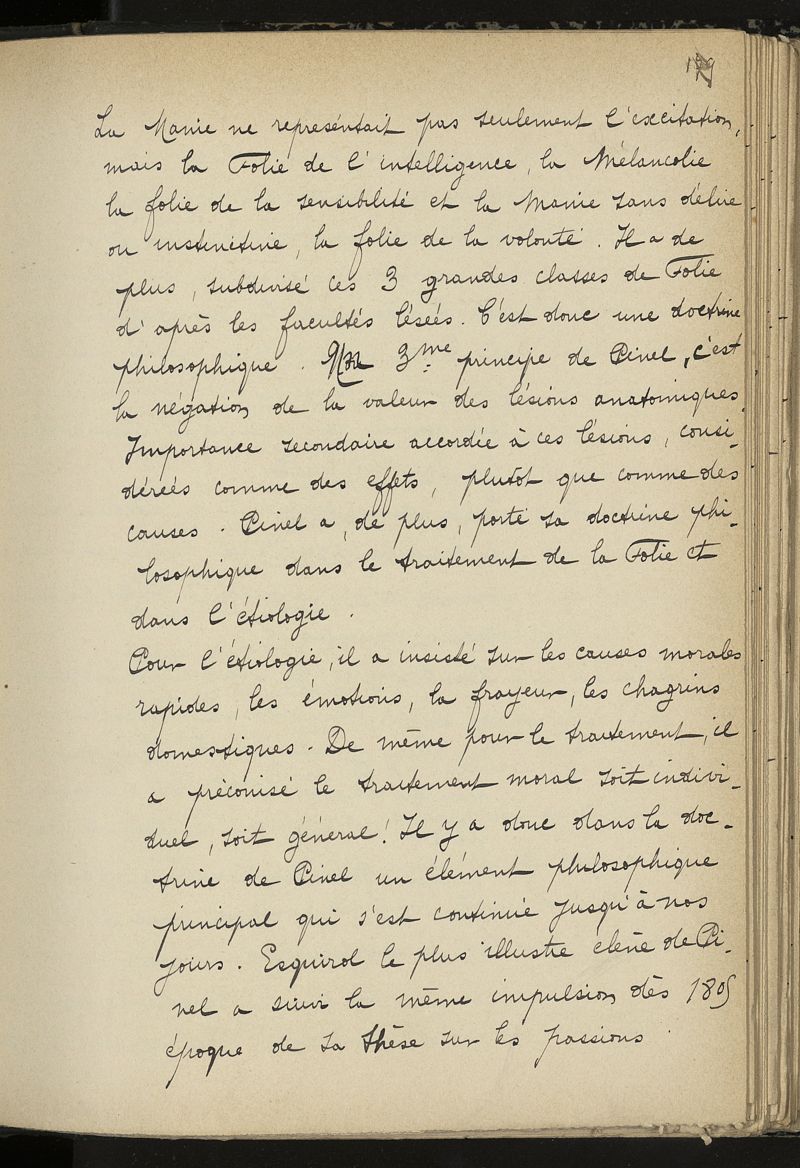 La Manie ne représentait pas seulement l'excitation,
mais la Folie de l'intelligence, la Mélancolie
la folie de la sensibilité et la Manie sans délire
ou instinctive, la folie de la volonté. Il a de
plus, subdivisé ces 3 grandes classes de Folie
d'après les facultés lésées. C'est donc une doctrine
philosophique. 3me principe de Pinel, c'est
la négation de la valeur des lésions anatomiques.
Importance secondaire accordée à ces lésions, consi-
dérées comme des effets, plutôt que comme des
causes. Pinel a, de plus, porté sa doctrine phi-
losophique dans le traitement de la Folie et
dans l'étiologie.
Pour l'étiologie, il a insisté sur les causes morales
rapides, les émotions, la frayeur, les chagrins
domestiques. De même pour le traitement, il
a préconisé le traitement moral soit indivi-
duel, soit général! Il y a donc dans la doc-
trine de Pinel un élément philosophique
principal qui s'est continué jusqu'à nos
jours. Esquirol le plus illustre élève de Pi-
nel a suivi la même impulsion dès 1805
époque de sa thèse sur les passions.